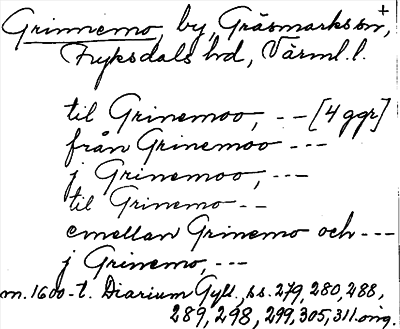 Grinnemo, by, Gräsmarks sn, +
Fryksdals hd, Värml. l.
til Grinemoo, -- [4 ggr]
från Grinemoo ---
j Grinemoo, ---
til Grinemo --
emellan Grinemo och ---
j Grinemo, ---
m. 1600-t. Diarium Gyll., ss. 279, 280, 288,
289, 298, 299, 305, 311. orig.